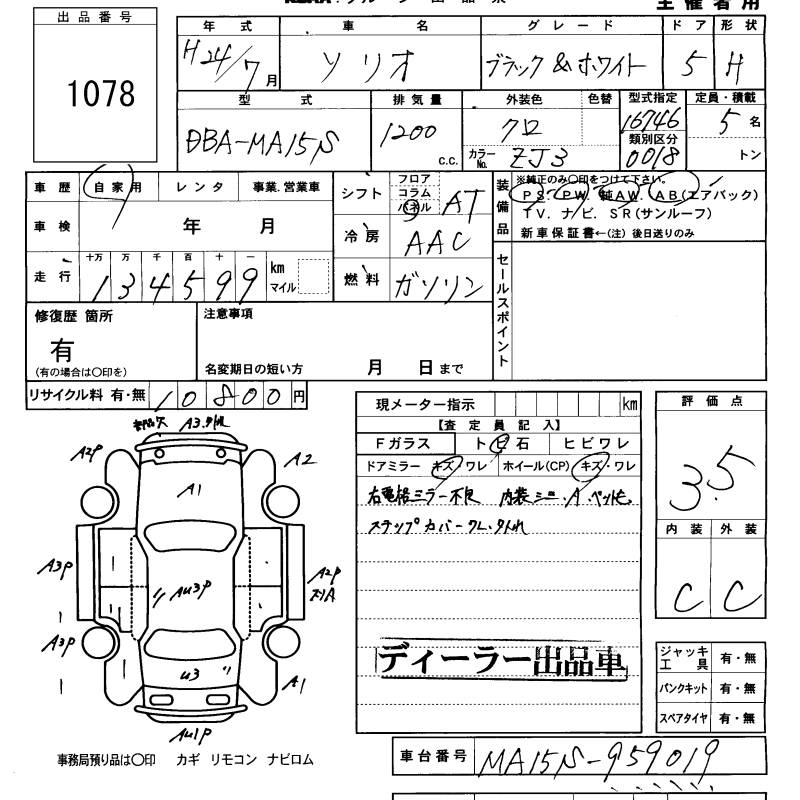 主催者用
出品番号
1078
年式 車名 グレード ドア 形状
H24/7月 ソリオ ブラック&ホワイト 5 H
型式 排気量 外装色 色替 型式指定 定員・積載
DBA-MA15S 1200 c.c. クロ 16746 5名
類別区分
カラーNo. ZJ3 0018 トン
車歴 自家用 レンタ 事業.営業車
シフト フロア コラム パネル AT
装備品 ※純正のみ〇印をつけて下さい。
PS. PW. 純AW. AB(エアバック)
TV. ナビ. SR(サンルーフ)
新車保証書←(注)後日送りのみ
車検 年 月
冷房 AAC
走行 十万 万 千 百 十 一 km マイル
134599
燃料 ガソリン
セールスポイント
修復歴 箇所
有
(有の場合は〇印を)
注意事項
名変期日の短い方 月 日まで
リサイクル料 有・無 10800円
現メーター指示 km
【査定員記入】
Fガラス トビ石 ヒビワレ
ドアミラー キズ・ワレ ホイール(CP) キズ・ワレ
右電格ミラー不良 内装シミ.A.ペット毛.
ステップカバーワレ.外れ
評価点
3.5
内装 外装
C C
A3.外れ
A2P A2
A1
A3P AU3P A2P
A3P
U3
A1
AU1P
ディーラー出品車
ジャッキ工具 有・無
パンクキット 有・無
スペアタイヤ 有・無
事務局預り品は〇印 カギ リモコン ナビロム
車台番号 MA15S-959019